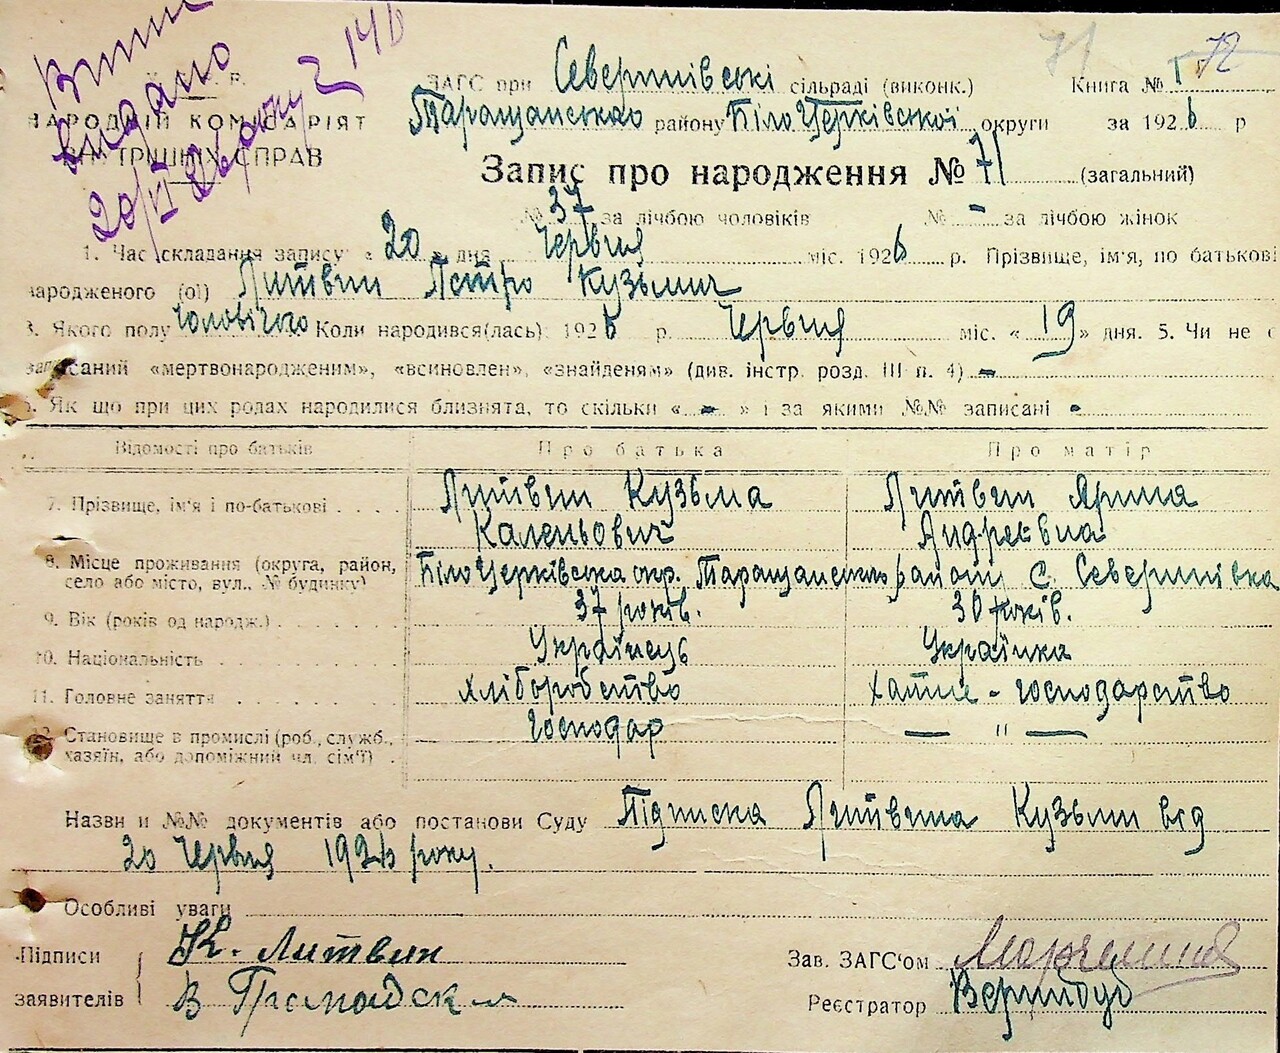 Видано
71 72
ЗАГС при Северинівські сільраді (виконк.) Книга № 1
НАРОДНІЙ КОМІСАРІЯТ
Таращанського району БілоЦерківської округи за 1926 р
ВНУТРІШНІХ СПРАВ
Запис про народження № 71 (загальний)
№ 37 за лічбою чоловіків № - за лічбою жінок
1. Час складання запису „ 20 „ дня Червня міс. 1926 р. Прізвище, ім'я, по батькові
народженого (ої) Литвин Петро Кузьмич
3. Якого полу чоловічого Коли народився(лась) 1926 р. Червня міс. « 19 » дня. 5. Чи не є
записаний «мертвонародженим», «всиновлен», «знайденям» (див. інстр. розд. III п. 4) -
6. Як що при цих родах народилися близнята, то скільки « - » і за якими №№ записані -
Відомості про батьків Про батька Про матір
7. Прізвище, ім'я і по-батькові . . . . Литвин Кузьма Каленьович Литвин Ярина Андреєвна
8. Місце проживання (округа, район,
село або місто, вул., № будинку) БілоЦерківська окр. Таращанського району с. Северинівка
9. Вік (років од народж.) 37 років. 30 років.
10. Національність Українець Українка
11. Головне заняття Хліборобство хатне - господарство
12. Становище в промислі (роб., служб., Господар — " —
хазяїн, або допоміжний чл. сім'ї) .
Назви и №№ документів або постанови Суду Підписка Литвина Кузьми від
20 Червня 1926 року.
Особливі уваги
Підписи К. Литвин Зав. ЗАГС'ом
заявителів В Громадск Реєстратор